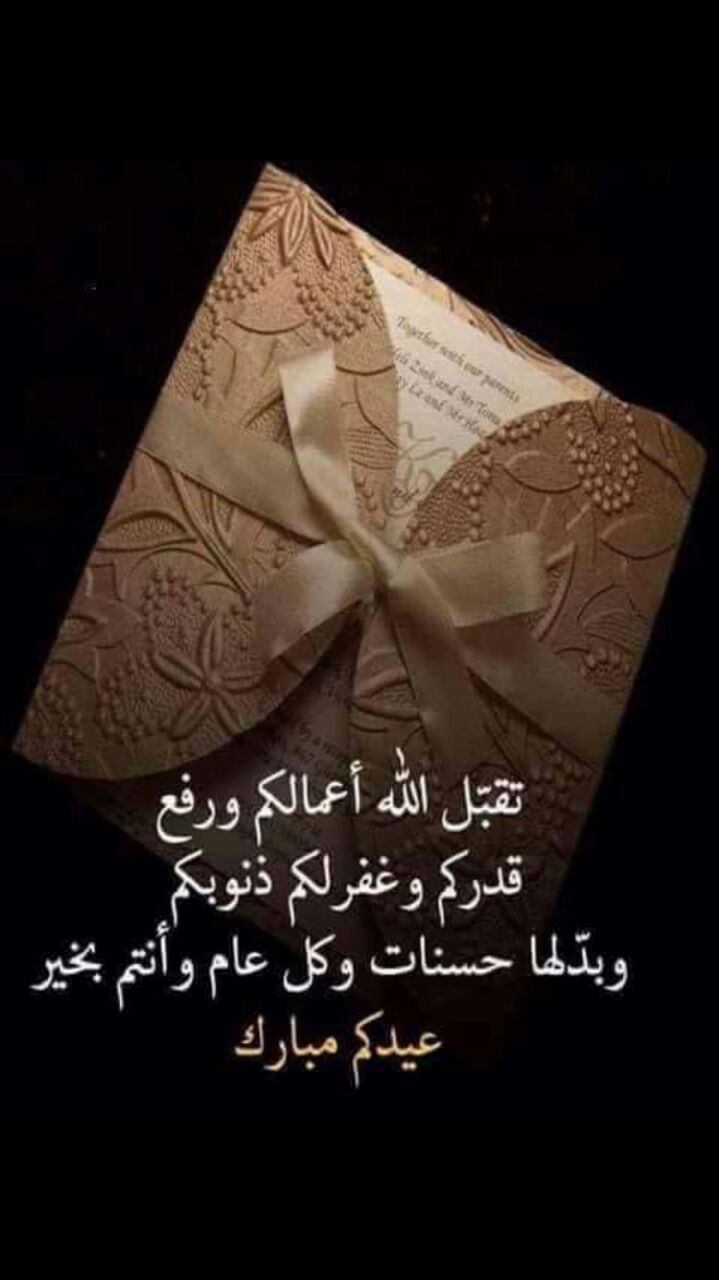 Together with our parents
and Ms
and Mr
تقبّل الله أعمالكم ورفع
قدركم وغفرلكم ذنوبكم
وبدّلها حسنات وكل عام وأنتم بخير
عيدكم مبارك